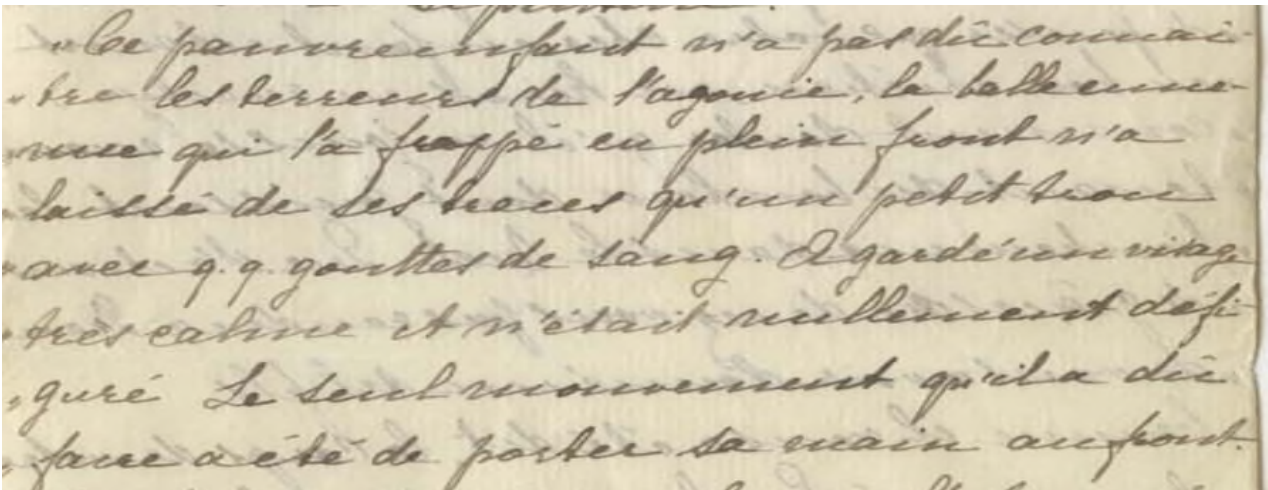 "Ce pauvre enfant n'a pas dû connai-
"tre les terreurs de l'agonie, la balle enne-
"mie qui l'a frappé en plein front n'a
"laissé de ses traces qu'un petit trou
"avec q.q. gouttes de sang. Il a gardé un visage
"très calme et n'était nullement défi-
"guré Le seul mouvement qu'il a dû
"faire a été de porter sa main au front.